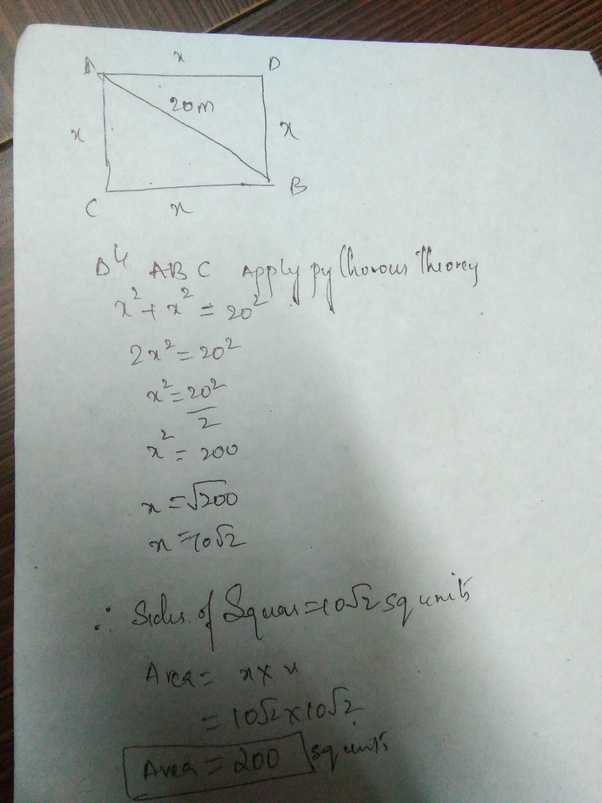 A x D
20m
x x
C x B
ABC Apply pythorous Theorey
x² + x² = 20²
2x² = 20²
x² = 20²/2
x² = 200
x = √200
x = 10√2
∴ Sides of Squar = 10√2 sq units
Area = x × x
= 10√2 × 10√2
Area = 200 sq units